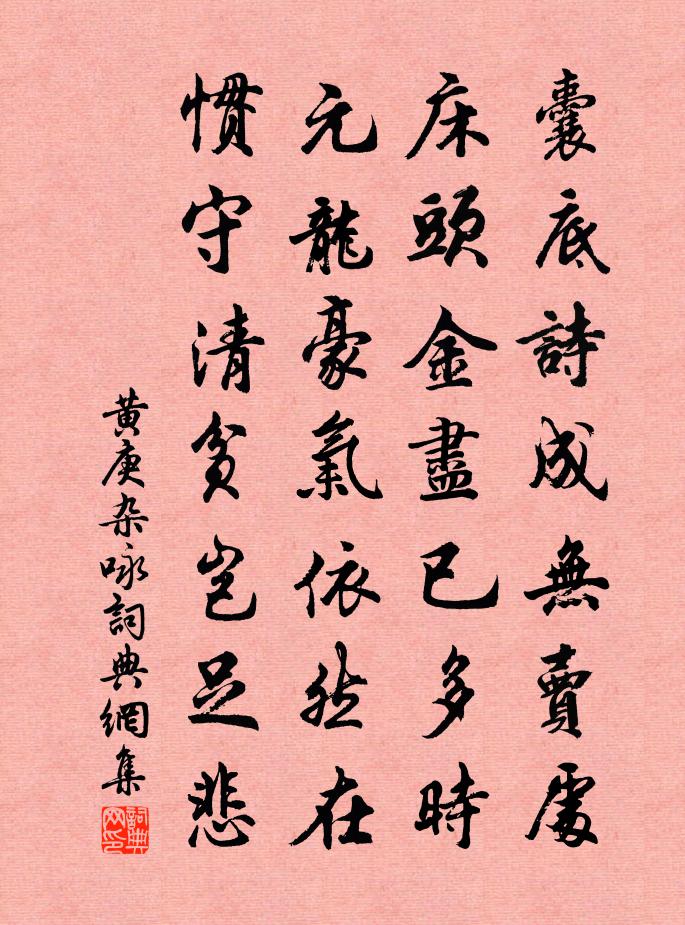 囊底詩成無賣處
床頭金盡已多時
元龍豪氣依然在
慣守清貧豈足悲
黃庚杂咏詞典網集
詞典网印